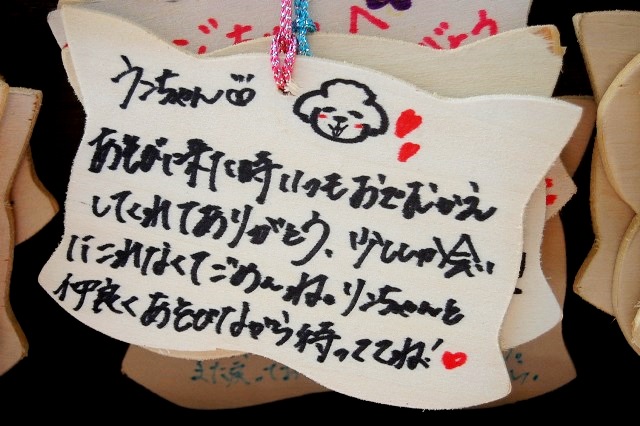 へ
ごちゃん がとう
ウンちゃん
あそびに来た時いつもおでむかえ
してくれてありがとう、少ししか会い
にこれなくてごめんね。リンちゃんと
仲良くあそびながら待っててね!
また